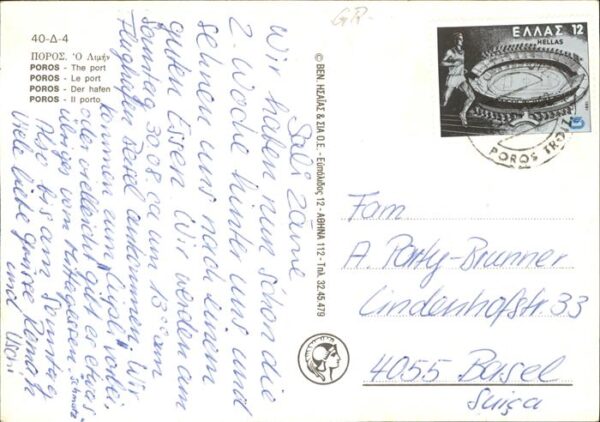 40-Δ-4
ΠΟΡΟΣ. Ὁ Λιμήν
POROS - The port
POROS - Le port
POROS - Der hafen
POROS - Il porto
Wir haben nun schon die
2. Woche hinter uns und
sehnen uns nach einem
guten Essen. Wir werden am
Sonntag 30.08 ca um 13 am
Flughafen Basel ankommen. Wir
kommen zum vorbei,
oder vielleicht gibt es etwas
übriges vom Mittagessen,
Also bis am Sonntag
Viele liebe Grüsse Renate
und
© ΒΕΝ. ΗΣΑΪΑΣ & ΣΙΑ Ο.Ε. - Εὐπόλιδος 12 - ΑΘΗΝΑ 112 - Τηλ. 32.45.479
ΕΛΛΑΣ 12
HELLAS
POROS
Fam
A. Porty-Brunner
Lindenhofstr. 33
4055 Basel
Suiça
GR-